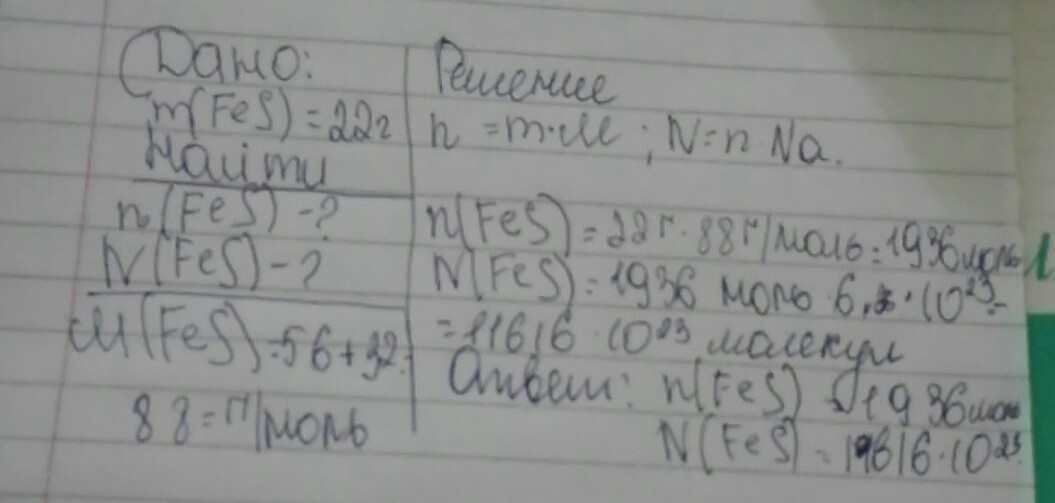 Дано:
m(FeS) = 22г
Найти
n(FeS) - ?
N(FeS) - ?
M(FeS) = 56 + 32 =
88 = г/моль
Решение
n = m·M ; N = n Na.
n(FeS) = 22г · 88г/моль = 1936 моль
N(FeS) = 1936 моль · 6, · 10²³ =
= 11616 · 10²³ малекул
Ответ: n(FeS) = 1936 моль
N(FeS) = 11616 · 10²³